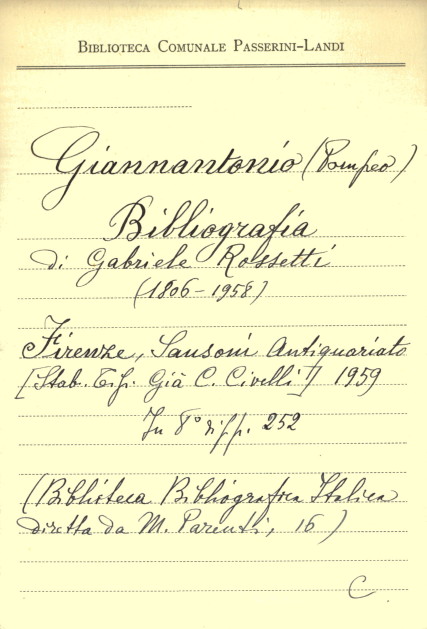 BIBLIOTECA COMUNALE PASSERINI-LANDI
Giannantonio (Pompeo)
Bibliografia
di Gabriele Rossetti
(1806-1958)
Firenze, Sansoni Antiquariato
[Stab. Tip. Già C. Civelli] 1959
In 8° di pp. 252
(Biblioteca Bibliografica Italica
diretta da M. Parenti, 16)
C